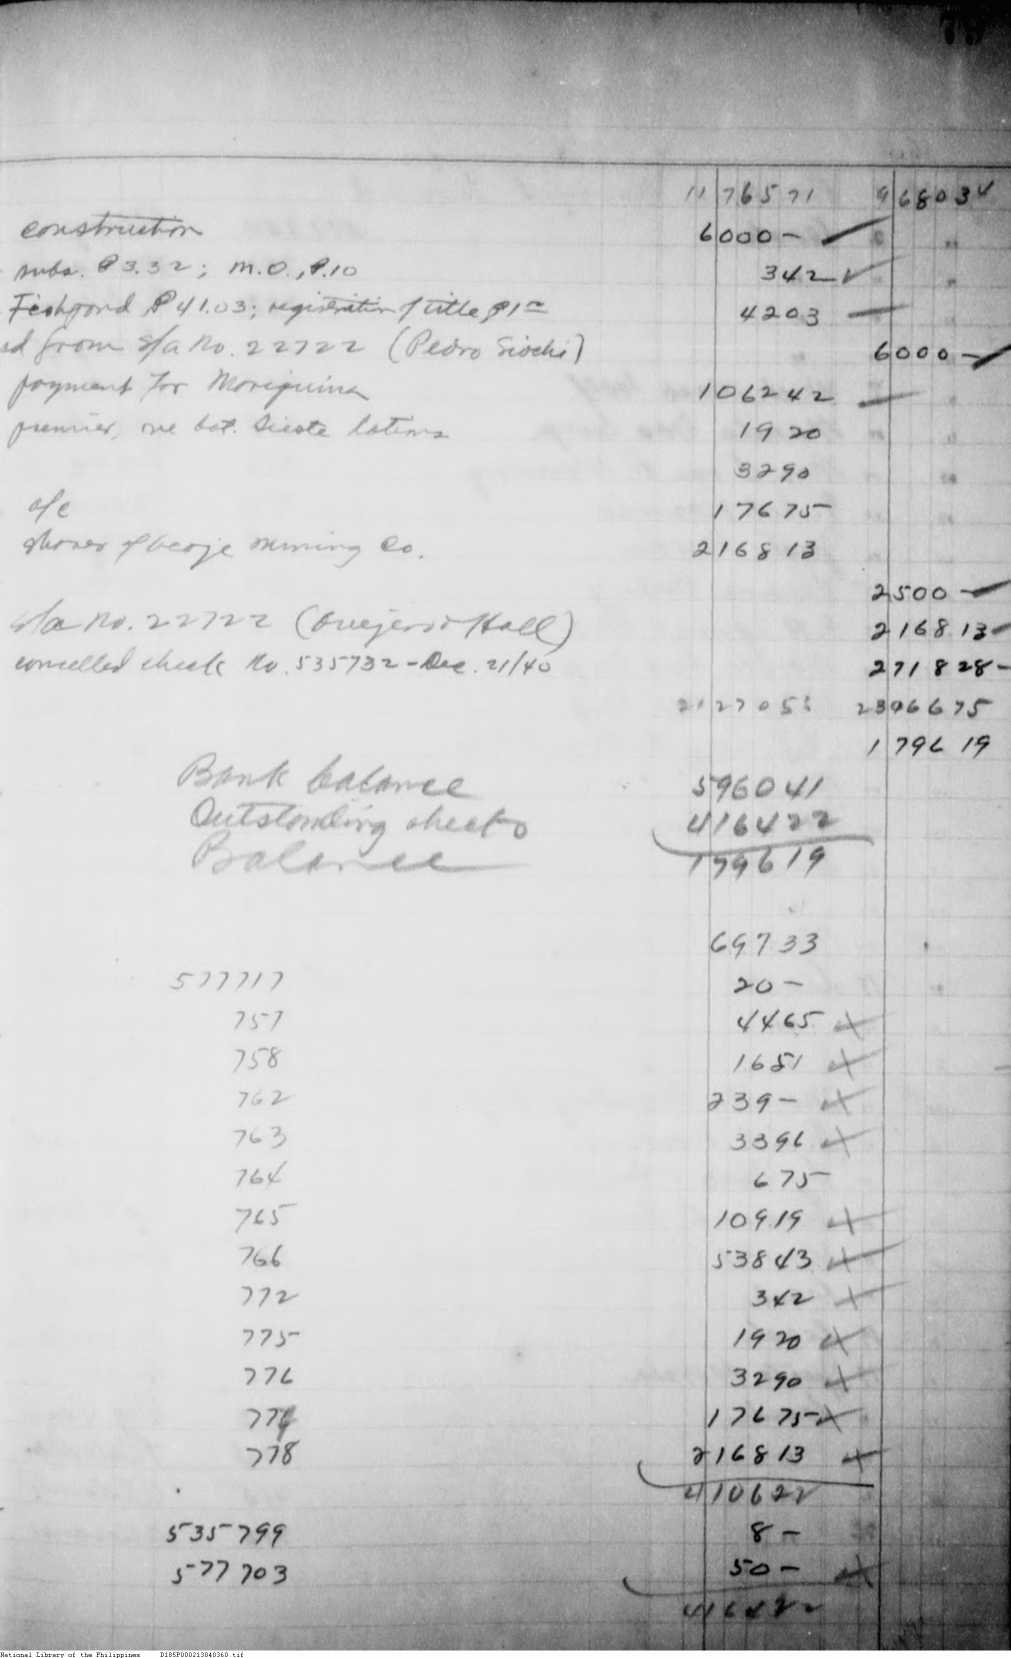 79
11 765 71 9 680 34
construction 6000 -
subs. ₱3.32; M.O., ₱.10 342
Fishpond ₱41.03; registration of title, ₱1 00 4203
ed from s/a No. 22722 (Pedro Siochi) 6000 -
payment for Mariquina 106242
premier, one bot. Sicote lotions 1920
3290
a/c 17675
shares of Mining Co. 216813
2500 -
s/a No. 22722 ( Hall) 216813
cancelled check No. 535732 - Dec. 21/40 271828 -
2127053 2306675
179619
Bank balance 596041
Outstanding checks 416422
Balance 179619
69733
577717 20 -
757 4465
758 1651
762 239 -
763 3396
764 675
765 10919
766 53843
772 342
775 1920
776 3290
777 17675
778 216813
410622
535799 8 -
577703 50 -
416422
National Library of the Philippines D185P000213840360.tif